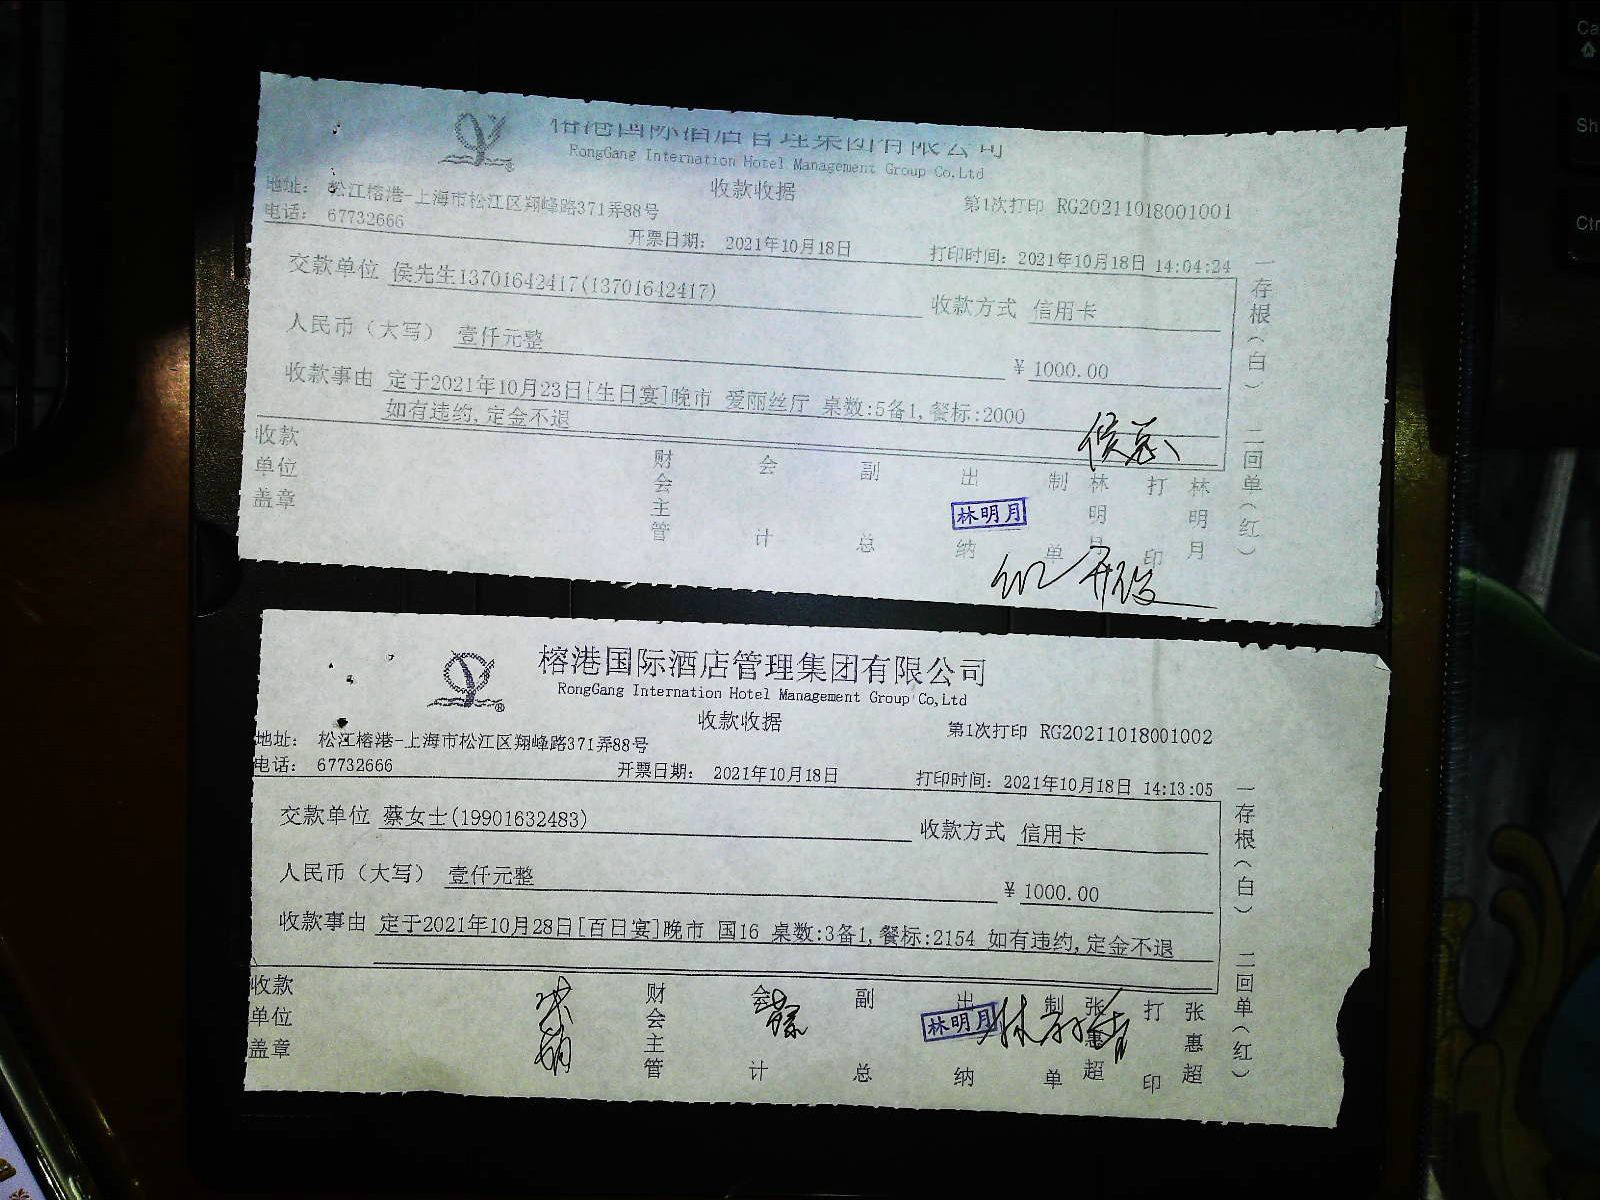 榕港国际酒店管理集团有限公司
RongGang Internation Hotel Management Group Co,Ltd
收款收据
地址： 松江榕港-上海市松江区翔峰路371弄88号
第1次打印 RG20211018001001
电话： 67732666
开票日期： 2021年10月18日
打印时间：2021年10月18日 14:04:24
交款单位 侯先生13701642417(13701642417)
收款方式 信用卡
人民币（大写） 壹仟元整
￥1000.00
收款事由 定于2021年10月23日[生日宴]晚市 爱丽丝厅 桌数:5备1,餐标:2000
如有违约,定金不退
收款单位盖章
财会主管
会计
副总
出纳
林明月
制单
林明月
打印
林明月
一存根（白） 二回单（红）
榕港国际酒店管理集团有限公司
RongGang Internation Hotel Management Group Co,Ltd
收款收据
地址： 松江榕港-上海市松江区翔峰路371弄88号
第1次打印 RG20211018001002
电话： 67732666
开票日期： 2021年10月18日
打印时间：2021年10月18日 14:13:05
交款单位 蔡女士(19901632483)
收款方式 信用卡
人民币（大写） 壹仟元整
￥1000.00
收款事由 定于2021年10月28日[百日宴]晚市 国16 桌数:3备1,餐标:2154 如有违约,定金不退
收款单位盖章
财会主管
会计
副总
出纳
林明月
制单
张惠超
打印
张惠超
一存根（白） 二回单（红）